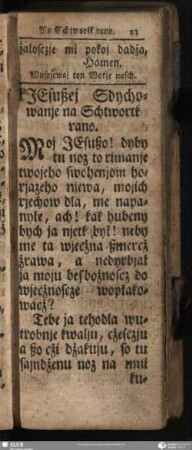 Na Schtwortk rano. 23
žalosczje mi pokoj dadža,
Hamen.
Wuspjewaj ton Watje nasch.
JEsußej Sdycho-
wanje na Schtwortk
rano.
Moj JEsußo! dyby
tu noz to rimanje
twojeho swohenjom ho-
rjazeho njewa, mojich
rjechow dla, me napa-
nyło, ach! kak hubeny
bych ja njetk był! neby
me ta wjeczna ßmercž
žrawa, a nedyrbjał
ja moju besbožnoscz do
wjecžnoscze woplako-
wacž?
Tebe ja tehodla wu-
trobnje kwalju, cžescžju
a ßo cži džakuju, so tu
sajndženu noz na mni
ku-